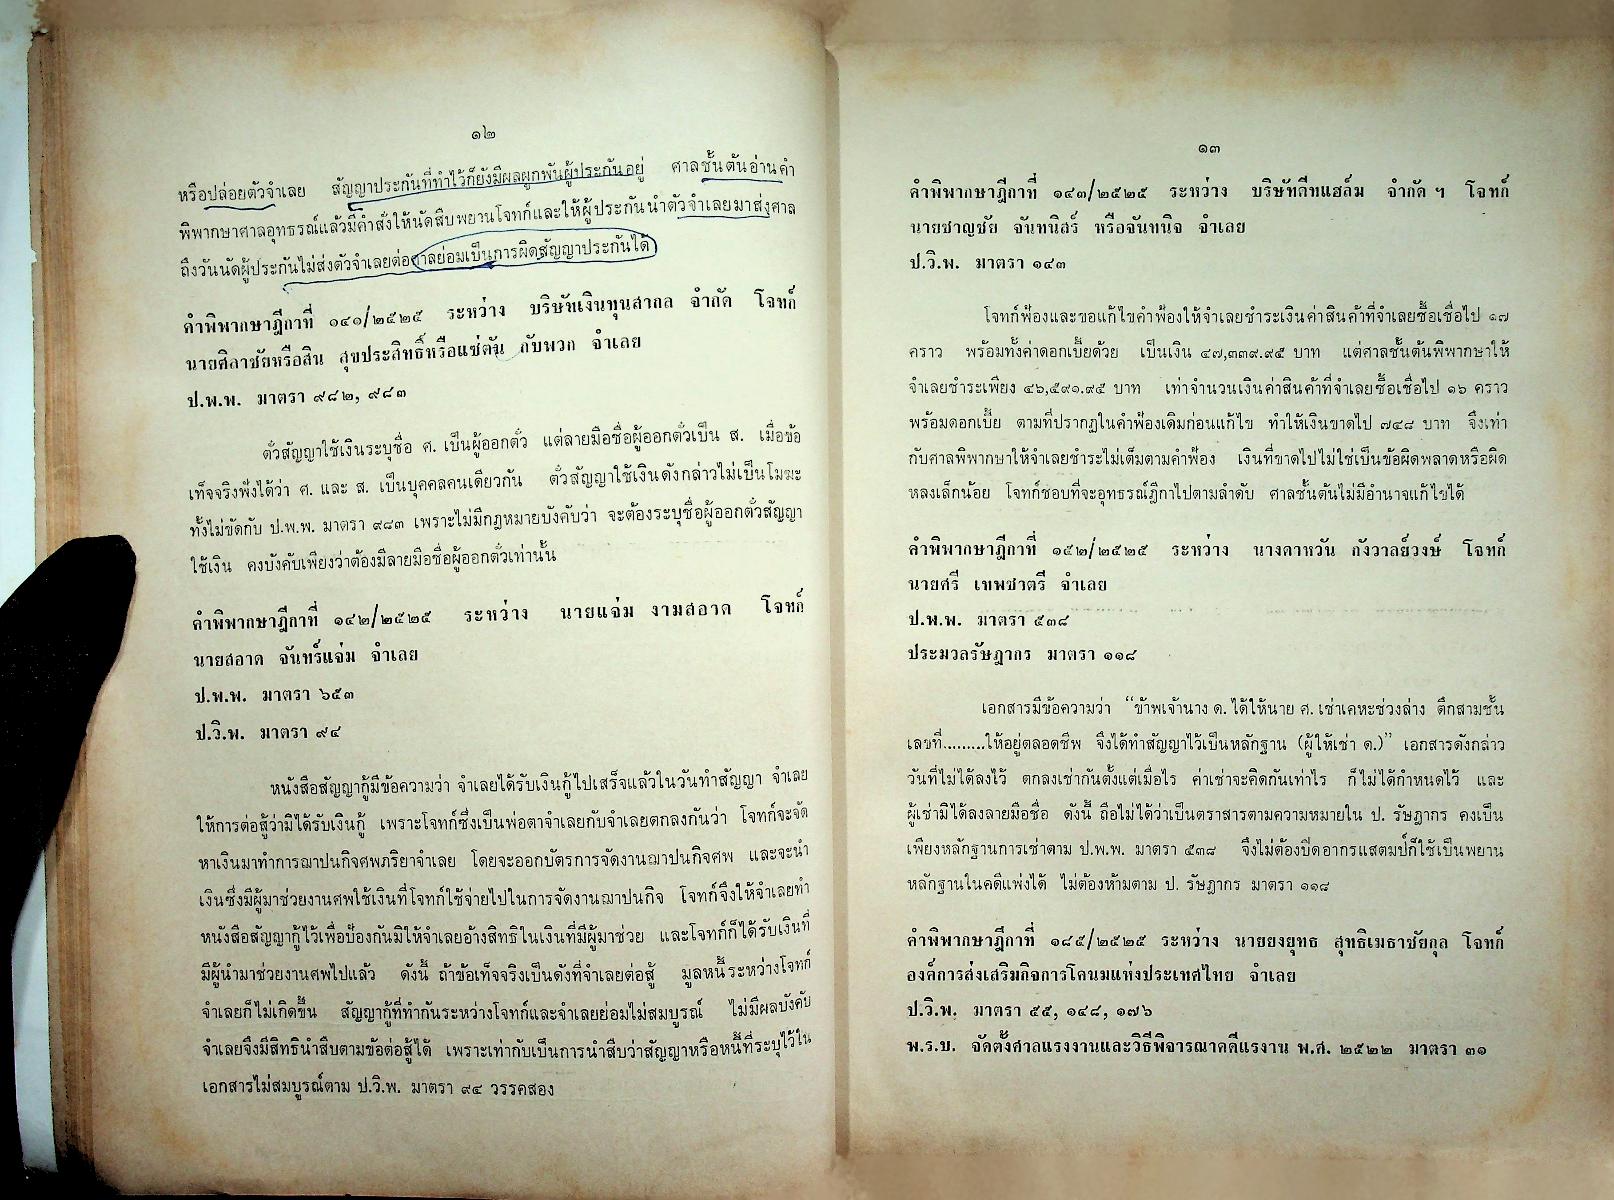 ๑๒
หรือปล่อยตัวจำเลย สัญญาประกันที่ทำไว้ก็ยังมีผลผูกพันผู้ประกันอยู่ ศาลชั้นต้นอ่านคำ
พิพากษาศาลอุทธรณ์แล้วมีคำสั่งให้นัดสืบพยานโจทก์และให้ผู้ประกันนำตัวจำเลยมาส่งศาล
ถึงวันนัดผู้ประกันไม่ส่งตัวจำเลยต่อศาลย่อมเป็นการผิดสัญญาประกันได้
คำพิพากษาฎีกาที่ ๑๔๑/๒๕๒๕ ระหว่าง บริษัทเงินทุนสากล จำกัด โจทก์
นายศิลาชัยหรือสิน สุขประสิทธิ์หรือแซ่ตัน กับพวก จำเลย
ป.พ.พ. มาตรา ๙๘๒, ๙๘๓
ตั๋วสัญญาใช้เงินระบุชื่อ ศ. เป็นผู้ออกตั๋ว แต่ลายมือชื่อผู้ออกตั๋วเป็น ส. เมื่อข้อ
เท็จจริงฟังได้ว่า ศ. และ ส. เป็นบุคคลคนเดียวกัน ตั๋วสัญญาใช้เงินดังกล่าวไม่เป็นโมฆะ
ทั้งไม่ขัดกับ ป.พ.พ. มาตรา ๙๘๓ เพราะไม่มีกฎหมายบังคับว่า จะต้องระบุชื่อผู้ออกตั๋วสัญญา
ใช้เงิน คงบังคับเพียงว่าต้องมีลายมือชื่อผู้ออกตั๋วเท่านั้น
คำพิพากษาฎีกาที่ ๑๔๒/๒๕๒๕ ระหว่าง นายแจ่ม งามสอาด โจทก์
นายสอาด จันทร์แจ่ม จำเลย
ป.พ.พ. มาตรา ๖๕๓
ป.วิ.พ. มาตรา ๙๔
หนังสือสัญญากู้มีข้อความว่า จำเลยได้รับเงินกู้ไปเสร็จแล้วในวันทำสัญญา จำเลย
ให้การต่อสู้ว่ามิได้รับเงินกู้ เพราะโจทก์ซึ่งเป็นพ่อตาจำเลยกับจำเลยตกลงกันว่า โจทก์จะจัด
หาเงินมาทำการฌาปนกิจศพภริยาจำเลย โดยจะออกบัตรการจัดงานฌาปนกิจศพ และจะนำ
เงินซึ่งมีผู้มาช่วยงานศพใช้เงินที่โจทก์ใช้จ่ายไปในการจัดงานฌาปนกิจ โจทก์จึงให้จำเลยทำ
หนังสือสัญญากู้ไว้เพื่อป้องกันมิให้จำเลยอ้างสิทธิในเงินที่มีผู้มาช่วย และโจทก์ก็ได้รับเงินที่
มีผู้นำมาช่วยงานศพไปแล้ว ดังนี้ ถ้าข้อเท็จจริงเป็นดังที่จำเลยต่อสู้ มูลหนี้ระหว่างโจทก์
จำเลยก็ไม่เกิดขึ้น สัญญากู้ที่ทำกันระหว่างโจทก์และจำเลยย่อมไม่สมบูรณ์ ไม่มีผลบังคับ
จำเลยจึงมีสิทธินำสืบตามข้อต่อสู้ได้ เพราะเท่ากับเป็นการนำสืบว่าสัญญาหรือหนี้ที่ระบุไว้ใน
เอกสารไม่สมบูรณ์ตาม ป.วิ.พ. มาตรา ๙๔ วรรคสอง
๑๓
คำพิพากษาฎีกาที่ ๑๔๓/๒๕๒๕ ระหว่าง บริษัทลีทแฮล์ม จำกัด ฯ โจทก์
นายชาญชัย จันทนิสร์ หรือจันทนิจ จำเลย
ป.วิ.พ. มาตรา ๑๔๓
โจทก์ฟ้องและขอแก้ไขคำฟ้องให้จำเลยชำระเงินค่าสินค้าที่จำเลยซื้อเชื่อไป ๑๗
คราว พร้อมทั้งค่าดอกเบี้ยด้วย เป็นเงิน ๔๗,๓๓๙.๙๕ บาท แต่ศาลชั้นต้นพิพากษาให้
จำเลยชำระเพียง ๔๖,๕๙๑.๙๕ บาท เท่าจำนวนเงินค่าสินค้าที่จำเลยซื้อเชื่อไป ๑๖ คราว
พร้อมดอกเบี้ย ตามที่ปรากฏในคำฟ้องเดิมก่อนแก้ไข ทำให้เงินขาดไป ๗๔๘ บาท จึงเท่า
กับศาลพิพากษาให้จำเลยชำระไม่เต็มตามคำฟ้อง เงินที่ขาดไปไม่ใช่เป็นข้อผิดพลาดหรือผิด
หลงเล็กน้อย โจทก์ชอบที่จะอุทธรณ์ฎีกาไปตามลำดับ ศาลชั้นต้นไม่มีอำนาจแก้ไขได้
คำพิพากษาฎีกาที่ ๑๕๒/๒๕๒๕ ระหว่าง นางดาหวัน กังวาลย์วงษ์ โจทก์
นายศรี เทพชาตรี จำเลย
ป.พ.พ. มาตรา ๕๓๘
ประมวลรัษฎากร มาตรา ๑๑๘
เอกสารมีข้อความว่า “ข้าพเจ้านาง ด. ได้ให้นาย ศ. เช่าเคหะช่วงล่าง ตึกสามชั้น
เลขที่.........ให้อยู่ตลอดชีพ จึงได้ทำสัญญาไว้เป็นหลักฐาน (ผู้ให้เช่า ด.)” เอกสารดังกล่าว
วันที่ไม่ได้ลงไว้ ตกลงเช่ากันตั้งแต่เมื่อไร ค่าเช่าจะคิดกันเท่าไร ก็ไม่ได้กำหนดไว้ และ
ผู้เช่ามิได้ลงลายมือชื่อ ดังนี้ ถือไม่ได้ว่าเป็นตราสารตามความหมายใน ป. รัษฎากร คงเป็น
เพียงหลักฐานการเช่าตาม ป.พ.พ. มาตรา ๕๓๘ จึงไม่ต้องปิดอากรแสตมป์ก็ใช้เป็นพยาน
หลักฐานในคดีแพ่งได้ ไม่ต้องห้ามตาม ป. รัษฎากร มาตรา ๑๑๘
คำพิพากษาฎีกาที่ ๑๘๕/๒๕๒๕ ระหว่าง นายยงยุทธ สุทธิเมธาชัยกุล โจทก์
องค์การส่งเสริมกิจการโคนมแห่งประเทศไทย จำเลย
ป.วิ.พ. มาตรา ๕๕, ๑๔๘, ๑๗๖
พ.ร.บ. จัดตั้งศาลแรงงานและวิธีพิจารณาคดีแรงงาน พ.ศ. ๒๕๒๒ มาตรา ๓๑